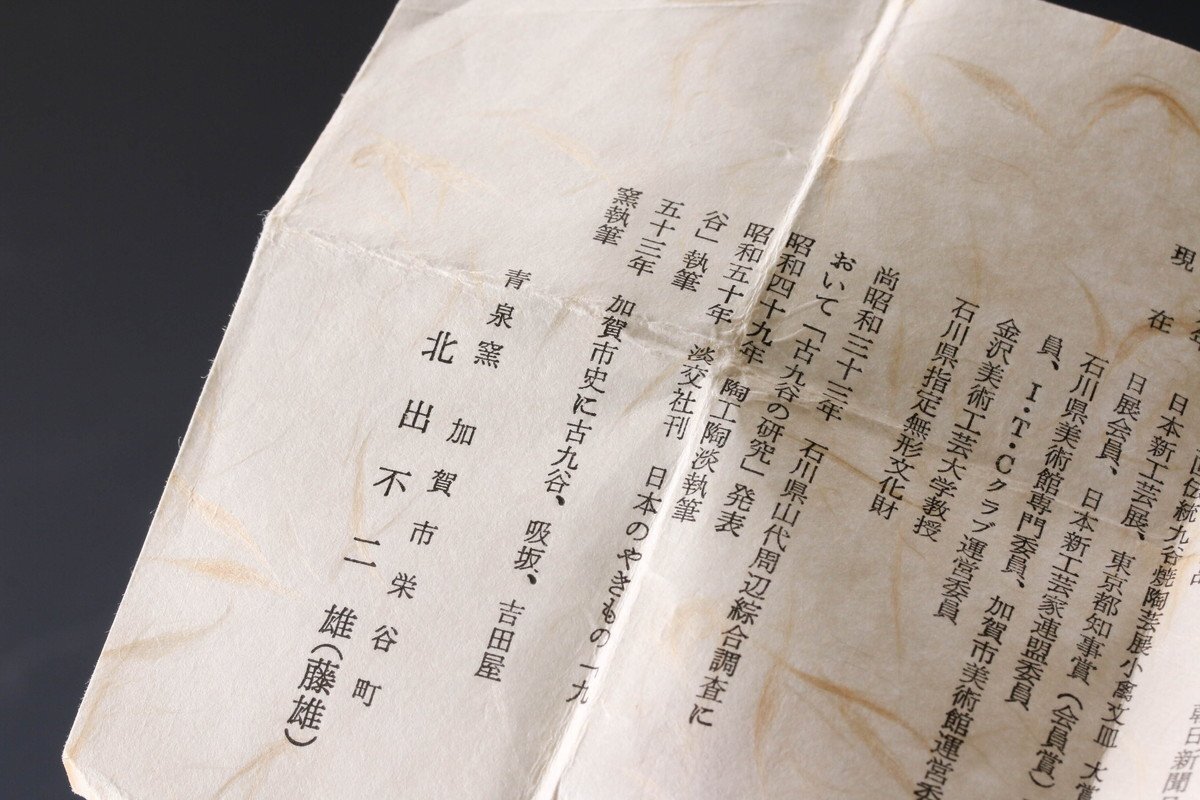 朝日新聞
伝統九谷焼陶芸展小禽文皿 大賞
現在 日本新工芸展、東京都知事賞(会員賞)
日展会員、日本新工芸家連盟委員
石川県美術館専門委員、加賀市美術館運営委
員、I・T・Cクラブ運営委員
金沢美術工芸大学教授
石川県指定無形文化財
尚昭和三十三年 石川県山代周辺綜合調査に
おいて「古九谷の研究」発表
昭和四十九年 陶工陶淡執筆
昭和五十年 淡交社刊 日本のやきもの「九
谷」執筆
五十三年 加賀市史に古九谷、吸坂、吉田屋
窯執筆
青泉窯 加賀市栄谷町
北出不二雄(藤雄)